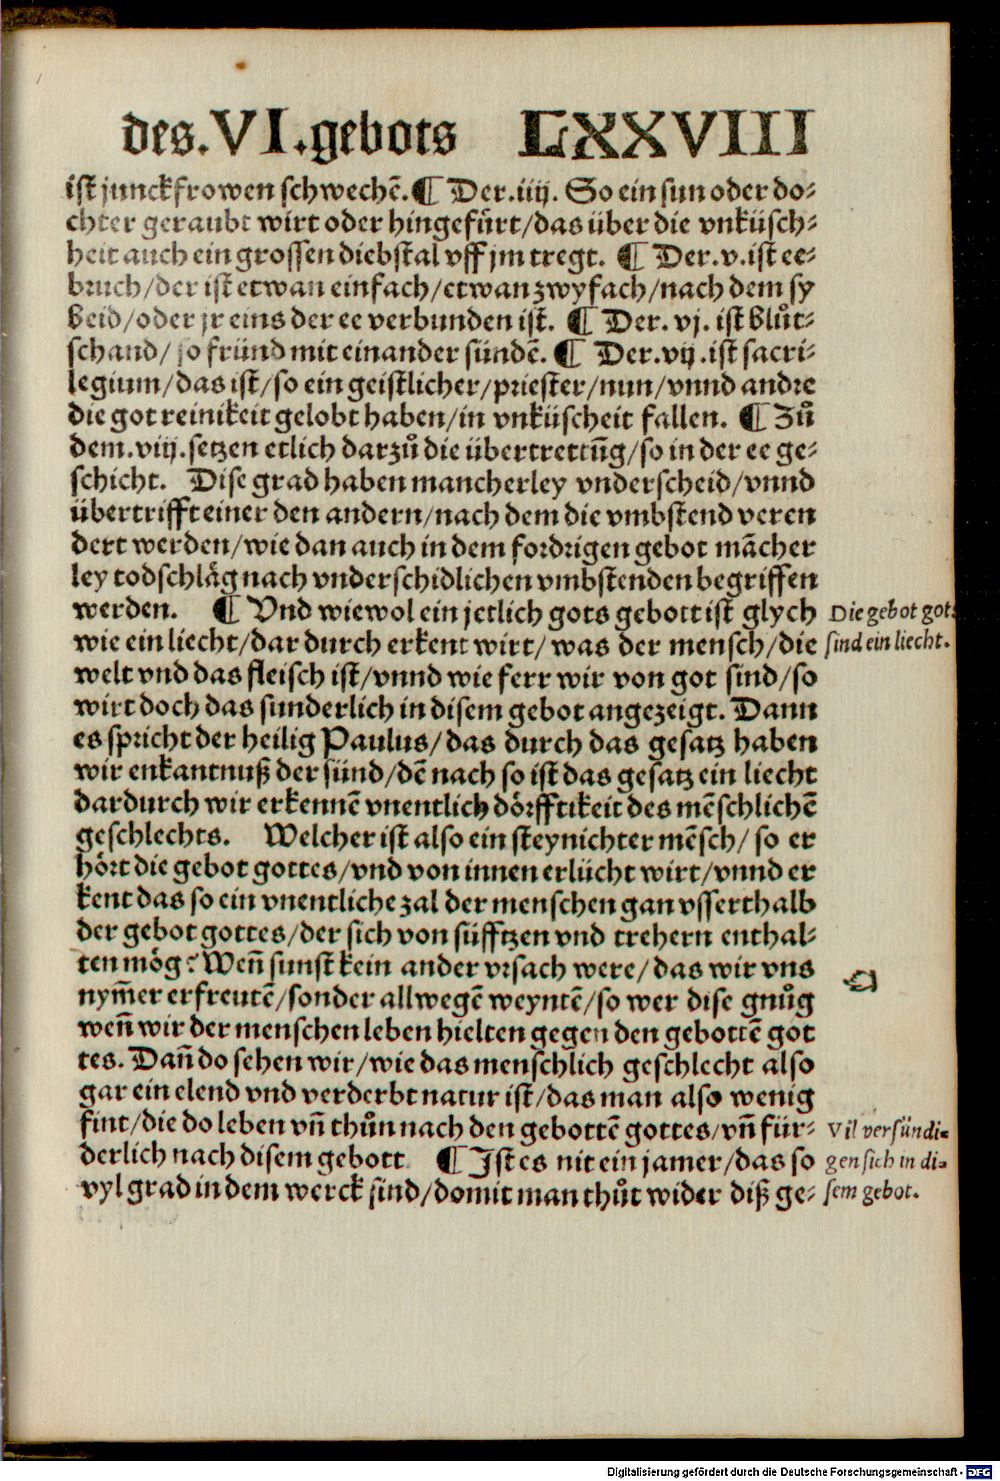 des.VI.gebots LXXVIII
ist junckfrowen schwechẽ.¶ Der.iiij. So ein sun oder do⸗
chter geraubt wirt oder hingefürt/das über die vnküsch⸗
heit auch ein grossen diebstal vff jm tregt. ¶ Der.v.ist ee⸗
bruch/der ist etwan einfach/etwan zwyfach/nach dem sy
beid/oder jr eins der ee verbunden ist. ¶ Der.vj.ist blůt⸗
schand/ so fründ mit einander sündẽ.¶ Der.vij.ist sacri⸗
legium/das ist/so ein geistlicher/priester/nun/vnnd andre
die got reinikeit gelobt haben/in vnküscheit fallen. ¶ Zů
dem.viij.setzen etlich darzů die übertrettũg/so in der ee ge⸗
schicht. Dise grad haben mancherley vnderscheid/vnnd
übertrifft einer den andern/nach dem die vmbstend veren
dert werden/wie dan auch in dem fordrigen gebot mãcher
ley todschläg nach vnderschidlichen vmbstenden begriffen
werden. ¶ Vnd wiewol ein jetlich gots gebott ist glych
Die gebot got⸗
wie ein liecht/dar durch erkent wirt/ was der mensch/die
sind ein liecht.
welt vnd das fleisch ist/vnnd wie ferr wir von got sind/so
wirt doch das sunderlich in disem gebot angezeigt. Dann
es spricht der heilig Paulus/das durch das gesatz haben
wir enkantnuß der sünd/dẽ nach so ist das gesatz ein liecht
dardurch wir erkennẽ vnentlich dörfftikeit des mẽschlichẽ
geschlechts. Welcher ist also ein steynichter mẽsch/ so er
hört die gebot gottes/vnd von innen erlücht wirt/vnnd er
kent das so ein vnentliche zal der menschen gan vsserthalb
der gebot gottes/der sich von süfftzen vnd trehern enthal⸗
ten mög? Weñ sunst kein ander vrsach were/das wir vns
nym̃er erfreutẽ/sonder allwegẽ weyntẽ/so wer dise gnůg
weñ wir der menschen leben hielten gegen den gebottẽ got
tes. Dañ do sehen wir/wie das menschlich geschlecht also
gar ein elend vnd verderbt natur ist/das man also wenig
fint/die do leben vñ thůn nach den gebottẽ gottes/vñ für⸗
Vil versündi⸗
derlich nach disem gebott ¶ Ist es nit ein jamer/das so
gen sich in di⸗
vyl grad in dem werck sind/domit man thůt wider diß ge⸗
sem gebot.
Digitalisierung gefördert durch die Deutsche Forschungsgemeinschaft - DFG